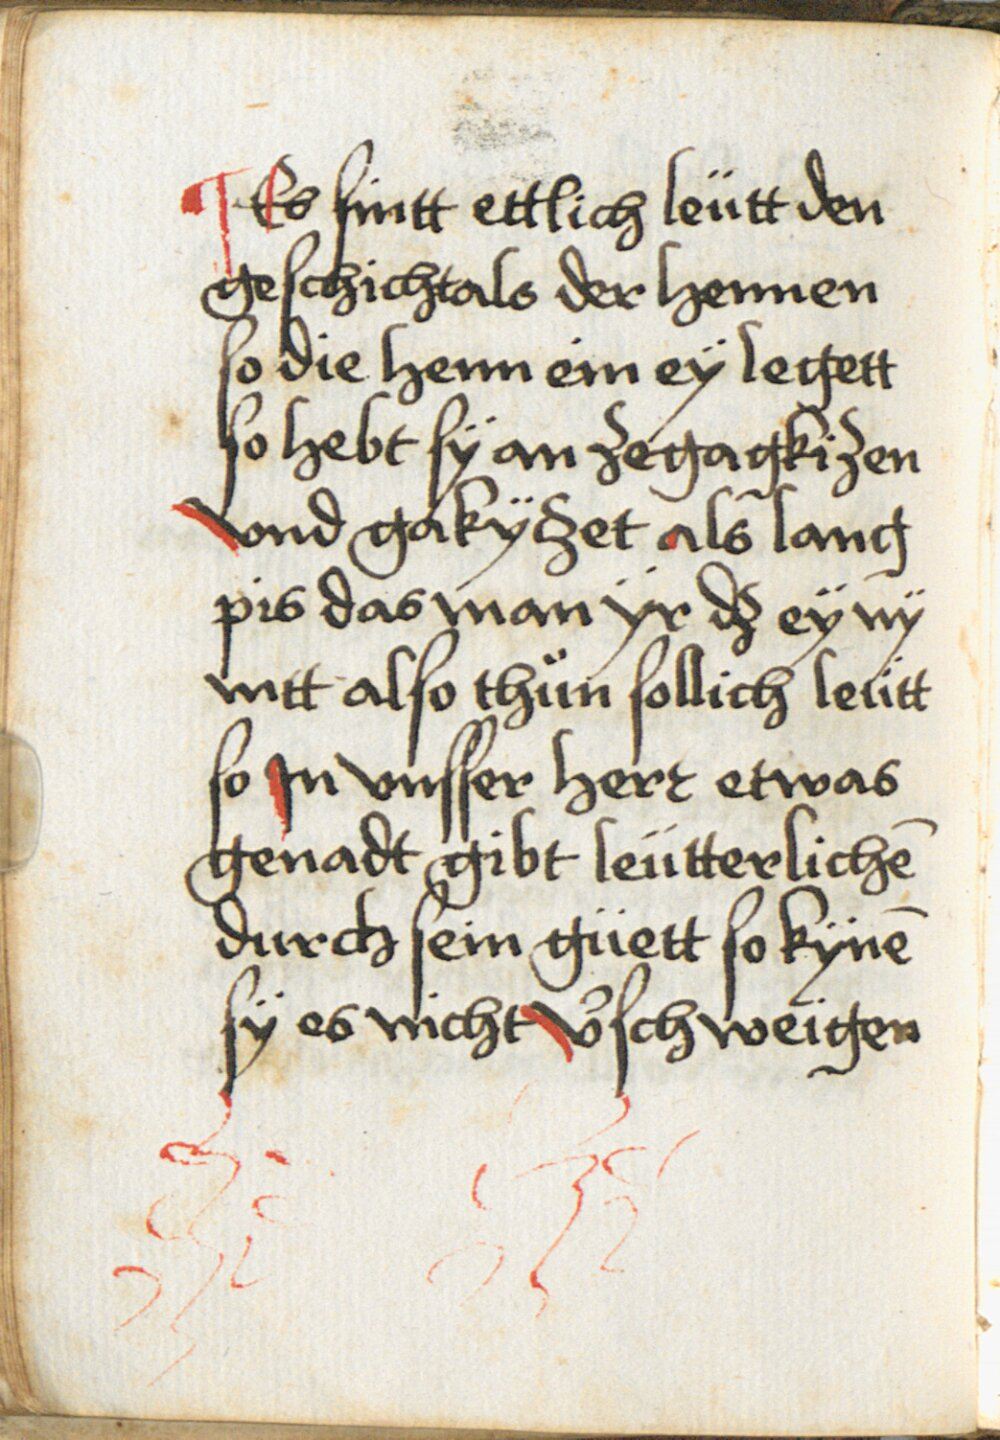 ¶ Es sintt ettlich leütt den
geschicht als der hennen
so die henn ein eÿ legett
so hebt sÿ an zegagkizen
vnd gakÿzet als̃ lang
pis das man ÿr dz eÿ nÿ
mtt also thün sollich leütt
so In vnsser herr etwas
genadt gibt leütterlichẽ
durch sein güett so kÿnẽ
sÿ es nicht v̓schweigen